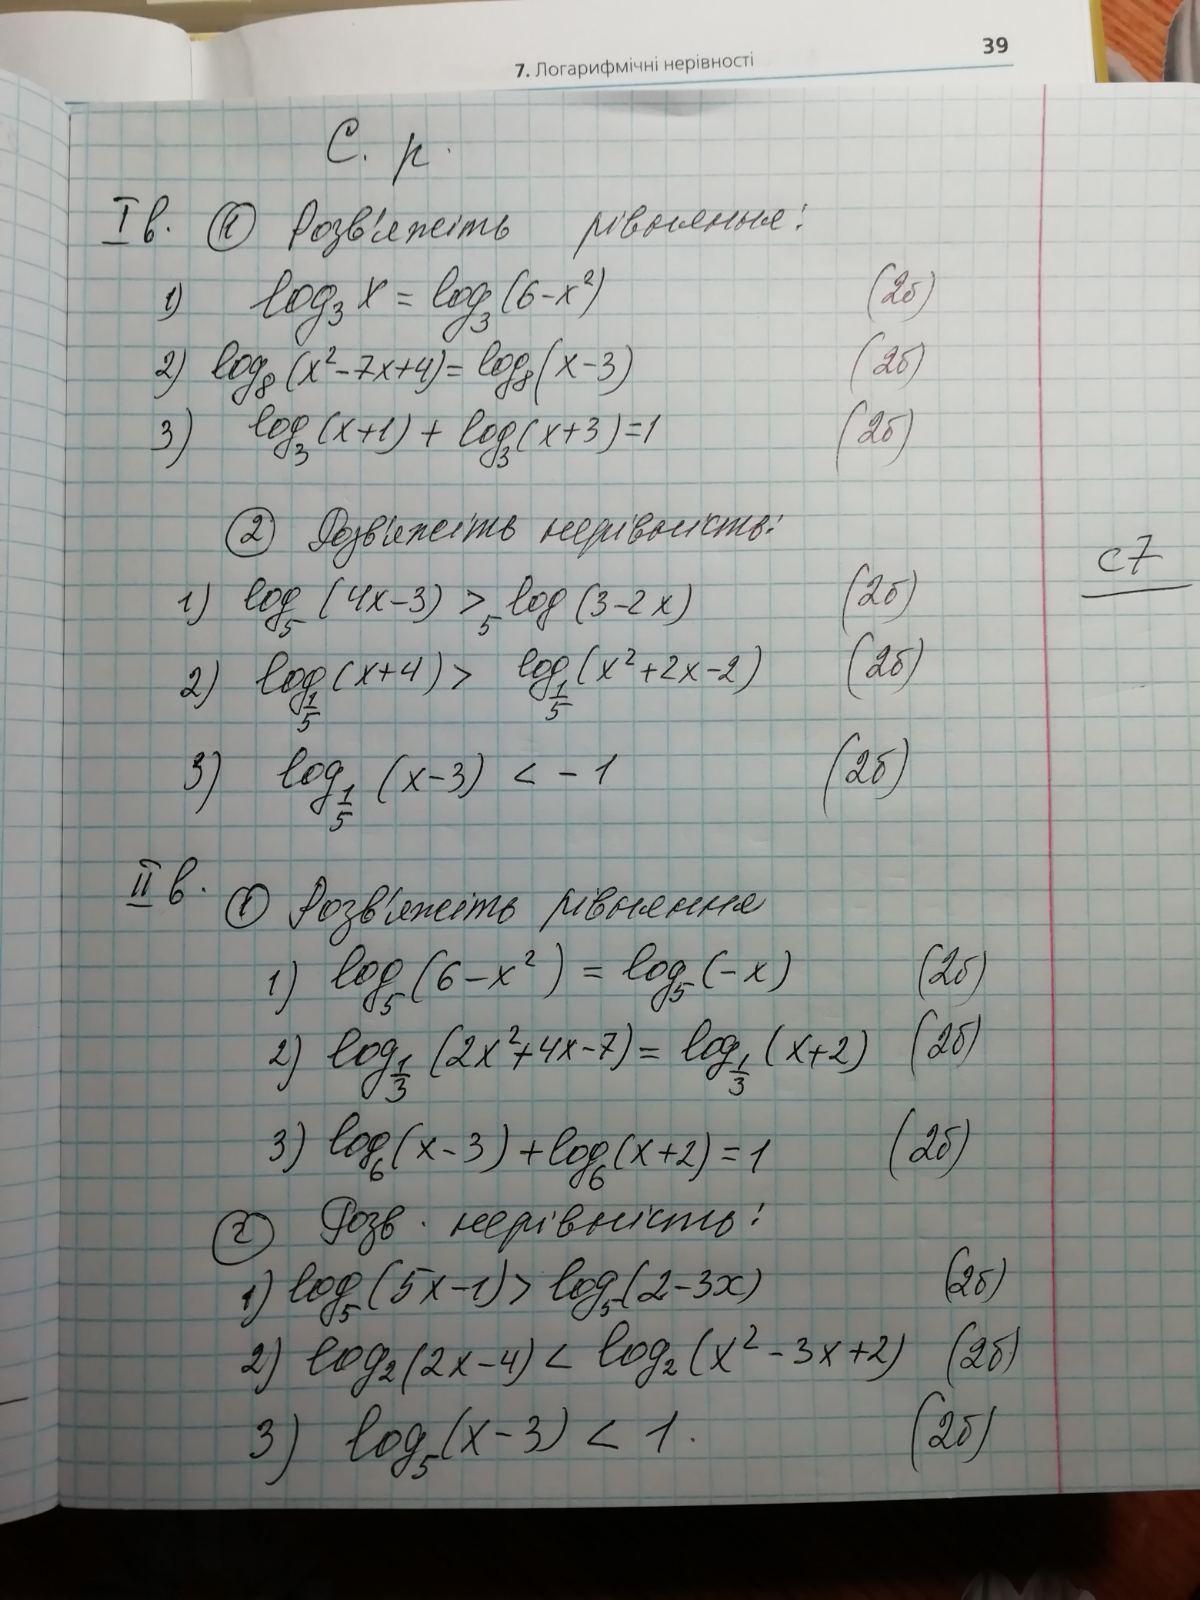 39
7. Логарифмічні нерівності
С. р.
І в. ① Розв'яжіть рівняння:
1) log₃ x = log₃(6-x²) (2б)
2) log₈(x²-7x+4) = log₈(x-3) (2б)
3) log₃(x+1) + log₃(x+3) = 1 (2б)
② Розв'яжіть нерівність:
1) log₅(4x-3) > ₅log(3-2x) (2б)
с7
2) log_{1/5}(x+4) > log_{1/5}(x²+2x-2) (2б)
3) log_{1/5}(x-3) < -1 (2б)
ІІ в. ① Розв'яжіть рівняння
1) log₅(6-x²) = log₅(-x) (2б)
2) log_{1/3}(2x²+4x-7) = log_{1/3}(x+2) (2б)
3) log₆(x-3) + log₆(x+2) = 1 (2б)
② Розв. нерівність:
1) log₅(5x-1) > log₅(2-3x) (2б)
2) log₂(2x-4) < log₂(x²-3x+2) (2б)
3) log₅(x-3) < 1. (2б)